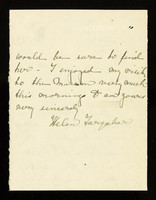 would be sure to find
her - I enjoyed my visit
to the Museum very much
this morning & am yours
very sincerely
Helen